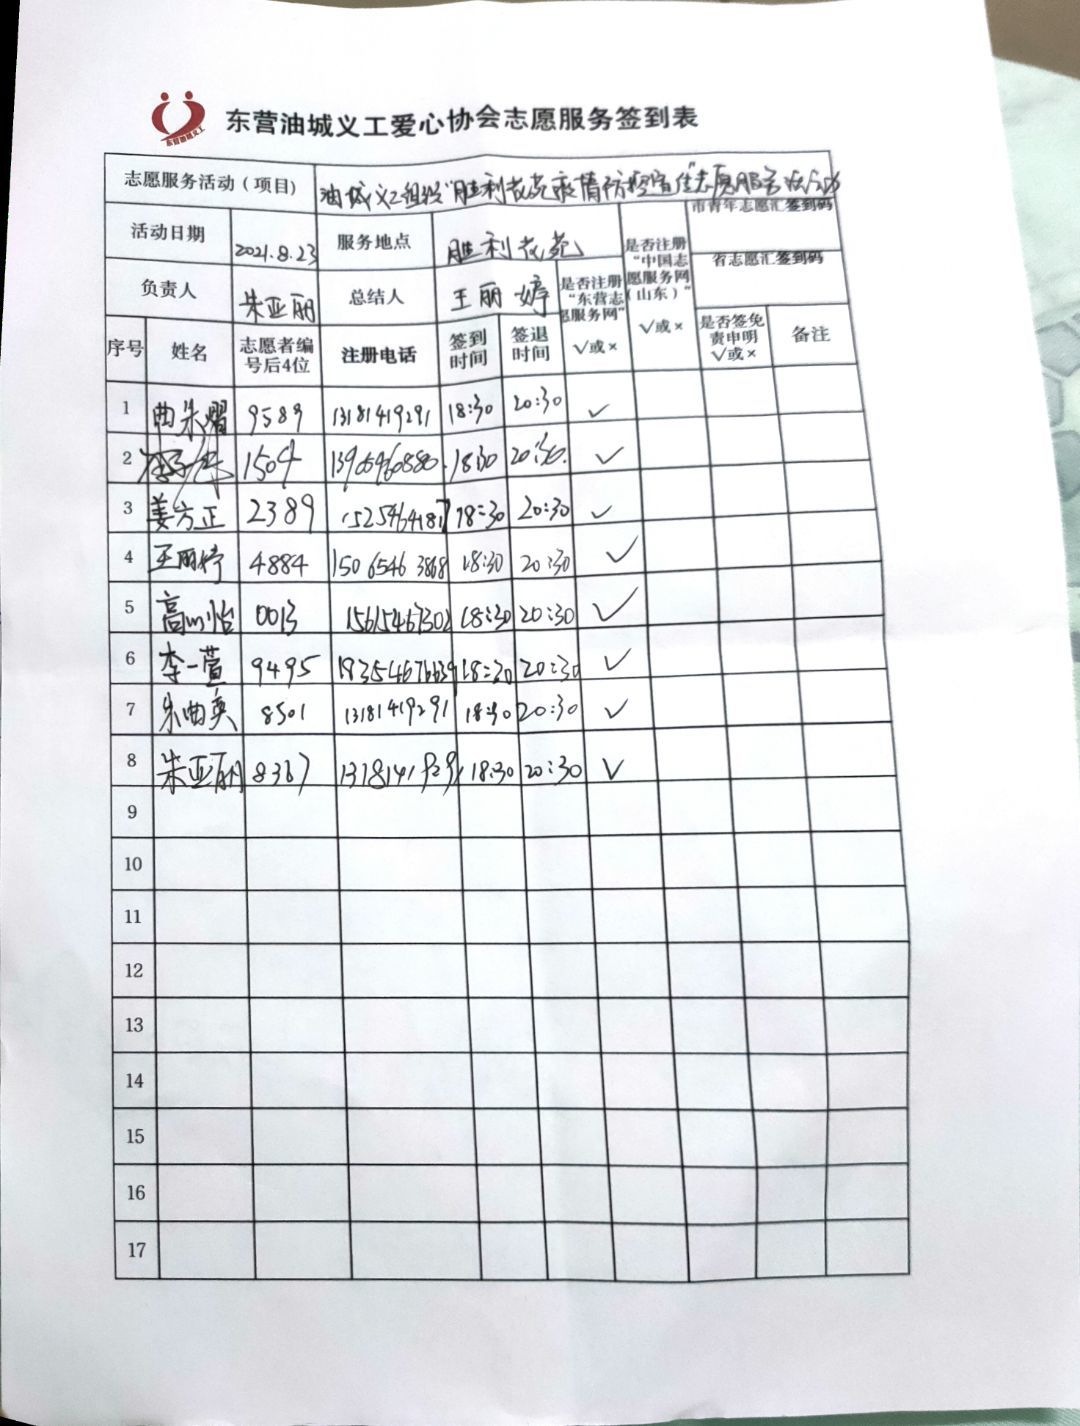 东营油城义工
东营油城义工爱心协会志愿服务签到表
志愿服务活动（项目） 油城义工组织"胜利花苑疫情防控宣传"志愿服务活动
活动日期 2021.8.23 服务地点 胜利花苑 是否注册"中国志愿服务网（山东）" √或× 市青年志愿汇签到码
负责人 朱亚丽 总结人 王丽婷 是否注册"东营志愿服务网" √或× 省志愿汇签到码
序号 姓名 志愿者编号后4位 注册电话 签到时间 签退时间 是否签免责申明 √或× 备注
1 曲朱熠 9589 13181419291 18:30 20:30 ✓
2 1504 13905460880 18:30 20:30 ✓
3 姜方正 2389 15254641817 18:30 20:30 ✓
4 王丽婷 4884 15065463868 18:30 20:30 ✓
5 高怡 0013 15615467302 18:30 20:30 ✓
6 李一萱 9495 18354676639 18:30 20:30 ✓
7 朱曲奕 8501 13181419291 18:30 20:30 ✓
8 朱亚丽 8367 13181419291 18:30 20:30 ✓
9
10
11
12
13
14
15
16
17